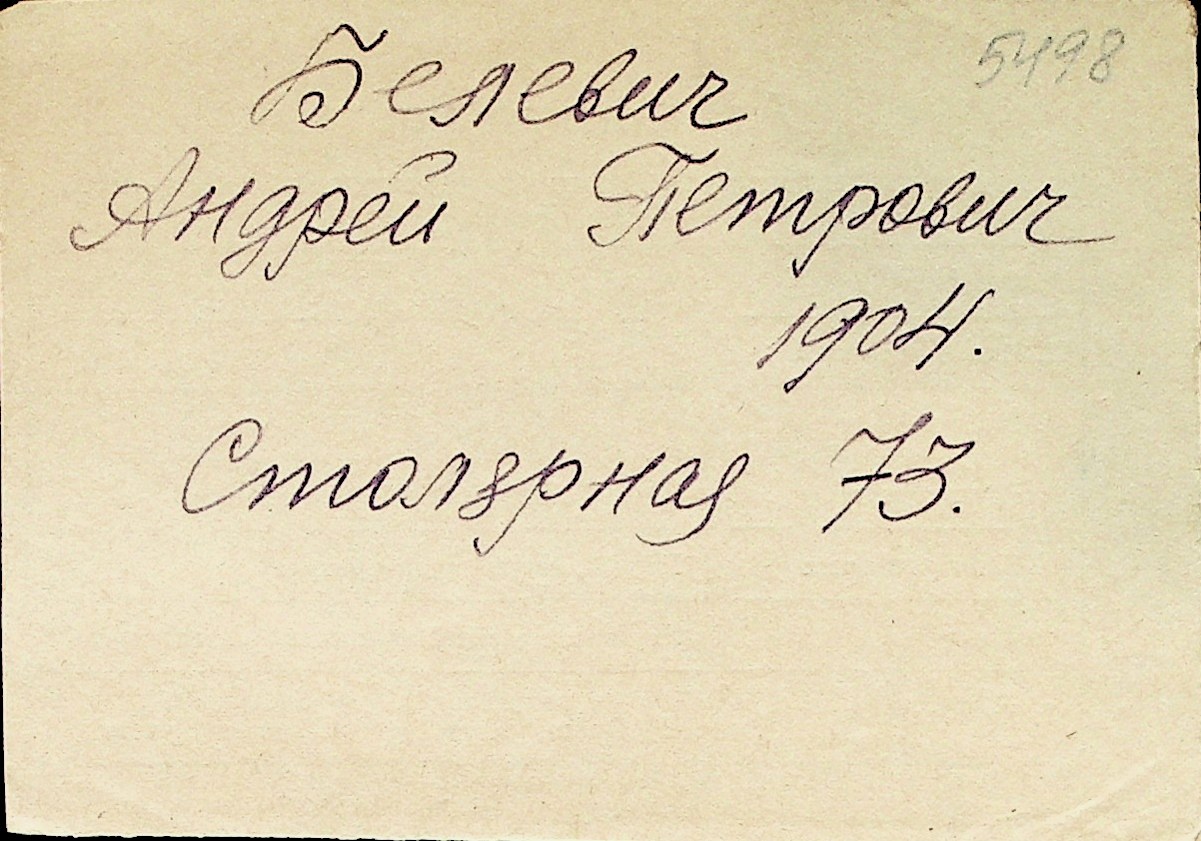 5498
Белевич
Андрей Петрович
1904.
Столярная 73.